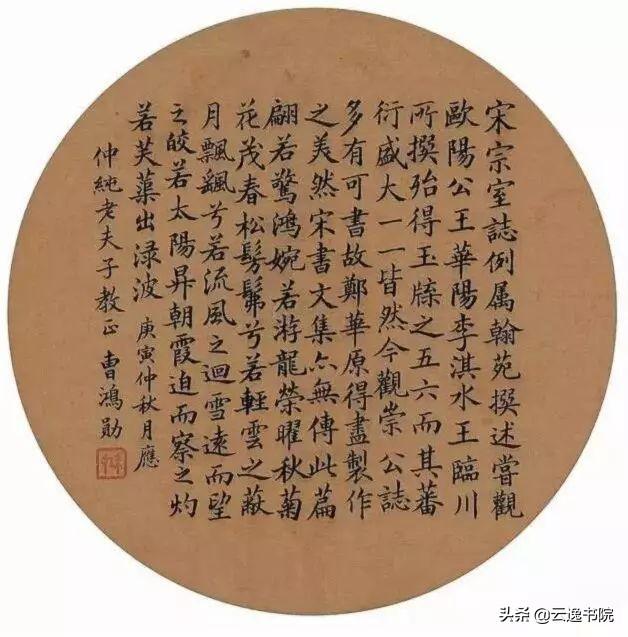 宋宗室誌例属翰苑撰述嘗觀
歐陽公王華陽李淇水王臨川
所撰殆得玉牒之五六而其蕃
衍盛大一一皆然今觀崇公誌
多有可書故鄭華原得盡製作
之美然宋書文集亦無傳此篇
翩若驚鴻婉若游龍榮曜秋菊
花茂春松髣髴兮若輕雲之蔽
月飄飖兮若流風之迴雪遠而望
之皎若太陽昇朝霞迫而察之灼
若芙蕖出渌波 庚寅仲秋月應
仲純老夫子教正 曹鴻勛
头条 @云逸书院